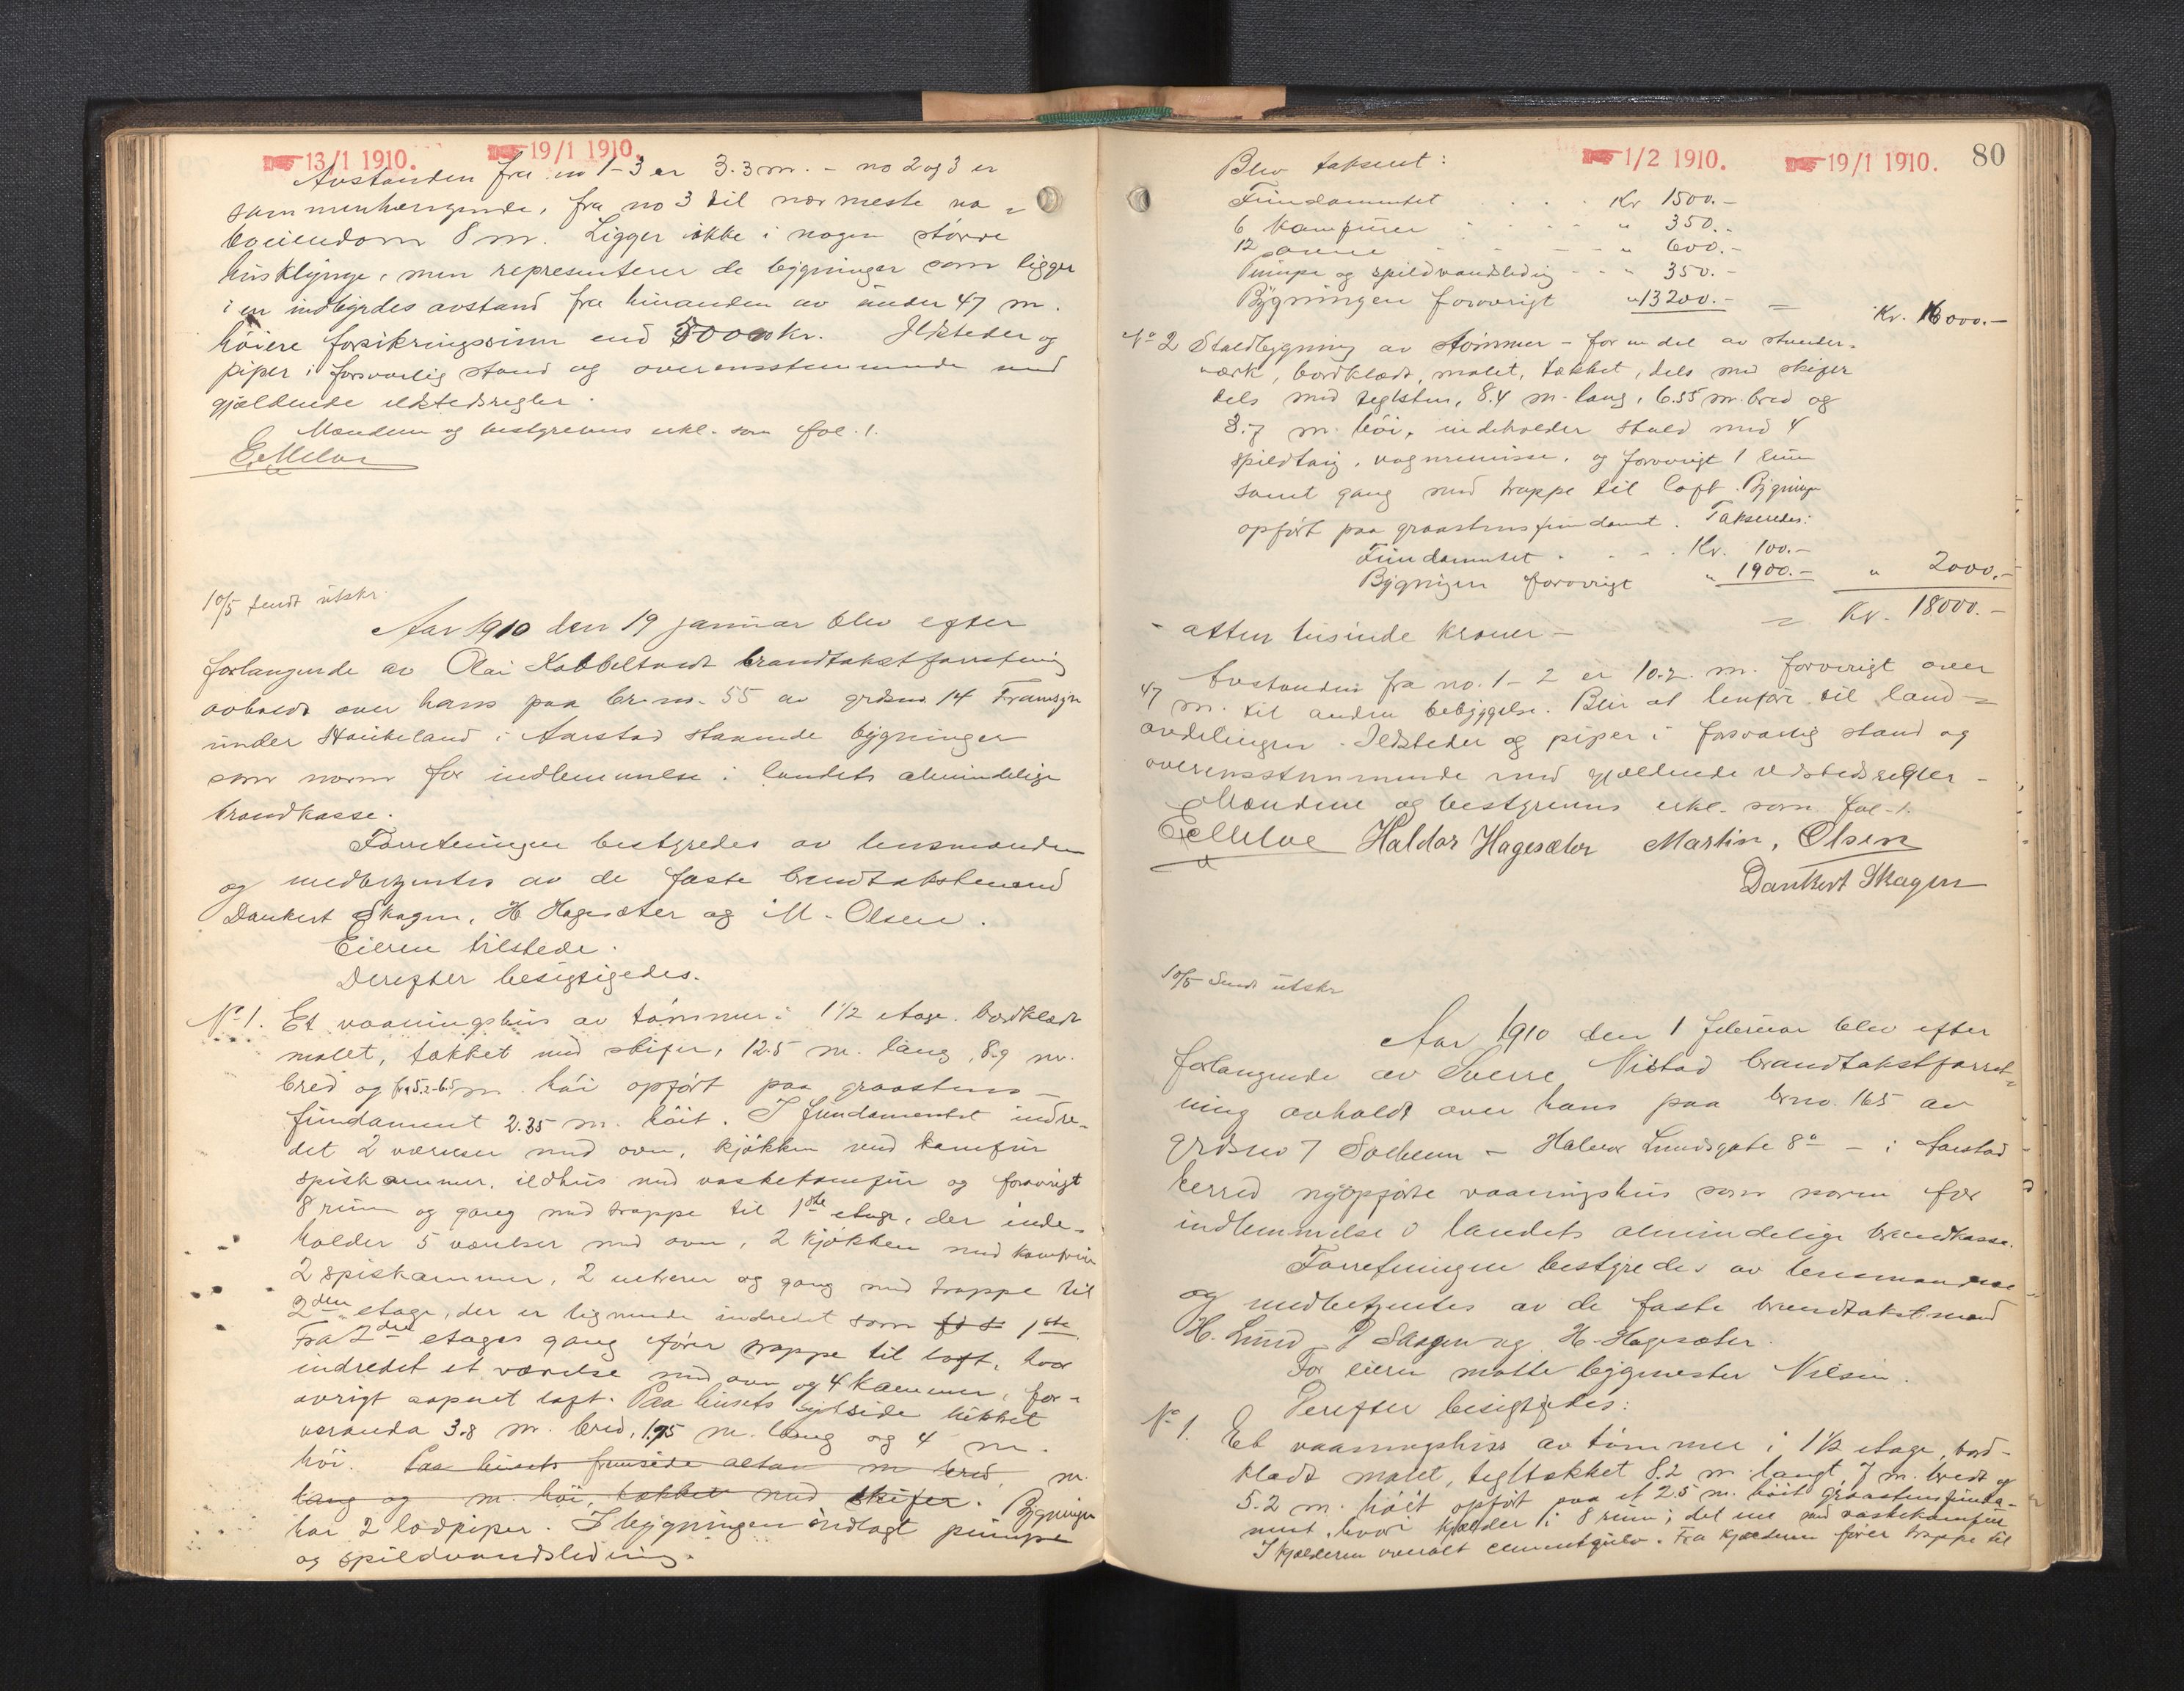 13/1 1910. 19/1 1910.
Avstanden fra no 1-3 er 3.3 m. - no 2 og 3 er
sammenhængende, fra no 3 til nærmeste na-
boeiendom 8 m. Ligger ikke i nogen større
husklynge, men representerer de bygninger som ligger
i en indbyrdes avstand fra hinanden av under 47 m.
höiere forsikringssum end 50000 kr. Ildsteder og
piper i forsvarlig stand og overensstemmende med
gjældende ildstedsregler.
Mændene og bestyrerens erkl. som fol. 1.
10/5 sendt utskr.
Aar 1910 den 19 januar blev efter
forlangende av Olai Kobbeltvedt brandtakstforretning
avholdt over hans paa br.no. 55 av grdsno. 14
under Haukeland i Aarstad staaende bygninger
som norm for indlemmelse i landets almindelige
brandkasse.
Forretningen bestyredes av lensmanden
og medbetjentes av de faste brandtakstmænd
Dankert Skagen, H. Hagesæter og M. Olsen.
Eieren tilstede.
Derefter besigtigedes.
No 1. Et vaaningshus av tömmer i 1 1/2 etage. bordklædt
malet, tækket med skifer, 12.5 m. lang, 8.9 m.
bred og fra 5.2-6.5 m. höi opfört paa graastens-
fundament 2.35 m. höit. I fundamentet indre-
det 2 værelser med ovn, kjökken med komfur
spiskammer, ildhus med vaskekomfur og forövrigt
8 rum og gang med trappe til 1ste etage, der inde-
holder 5 værelser med ovn, 2 kjökken med komfur
2 spiskammer, 2 entreer og gang med trappe til
2den etage, der er lignende indredet som 1ste
Fra 2den etages gang förer trappe til loft, hvor
indredet et værelse med ovn og 4 kammer, for-
övrigt aapnet loft. Paa husets sydside lukket
veranda 3.8 m. bred, 1.95 m. lang og 4 m.
höi. Paa husets framside altan m bred m.
lang og m. höi, tækket med skifer. Bygningen
har 2 lodpiper. I bygningen indlagt pumpe
og spildvandsledning.
1/2 1910. 19/1 1910. 80
Blev taksert:
Fundamentet . . . Kr 1500.-
6 komfurer . . . . " 350.-
12 ovne - - - - " 600.-
Pumpe og spildvandsledning - - " 350.-
Bygningen forövrigt " 13200.- = Kr. 16000.-
No 2 Staldbygning av tömmer - for en del av stender-
værk, bordklædt, malet, tækket, dels med skifer
dels med teglsten, 8.4 m. lang, 6.55 m. bred og
3.7 m. höi, indeholder stald med 4
spildtaug, vognremisse, og forövrigt 1 rum
samt gang med trappe til loft. Bygningen
opfört paa graastensfundament. Takseredes:
Fundamentet . . . . Kr. 100.-
Bygningen forövrigt " 1900.- " 2000.-
= Kr. 18000.-
- atten tusinde kroner -
Avstanden fra no. 1-2 er 10.2 m. forövrigt over
47 m. til anden bebyggelse. Blir at henföre til land-
avdelingen. Ildsteder og piper i forsvarlig stand og
overensstemmende med gjældende ildstedsregler -
Mændene og bestyrerens erkl. som fol. 1.
Haldor Hagesæter Martin, Olsen
Dankert Skagen
10/5 Sendt utskr
Aar 1910 den 1 februar blev efter
forlangende av Sverre Nistad brandtakstforret-
ning avholdt over hans paa brno. 165 av
Grdsno 7 Solheim - Halvor Lundsgate 8a - i Aarstad
herred nyopförte vaaningshus som norm for
indlemmelse i landets almindelige brandkasse.
Forretningen bestyredes av lensmanden
og medbetjentes av de faste brandtakstmænd
H. Lund, D Skagen og H. Hagesæter.
For eieren mötte bygmester Nilsen.
Derefter besigtigedes:
No 1. Et vaaningshus av tömmer i 1 1/2 etage, bord-
klædt malet, tegltækket 8.2 m. langt, 7 m. bredt og
5.2 m. höit opfört paa et 2.5 m. höit graastensfunda-
ment, hvori kjælder i 8 rum, det ene med vaskekomfur
I kjælderen overalt cementgulv. Fra kjælderen förer trappe til